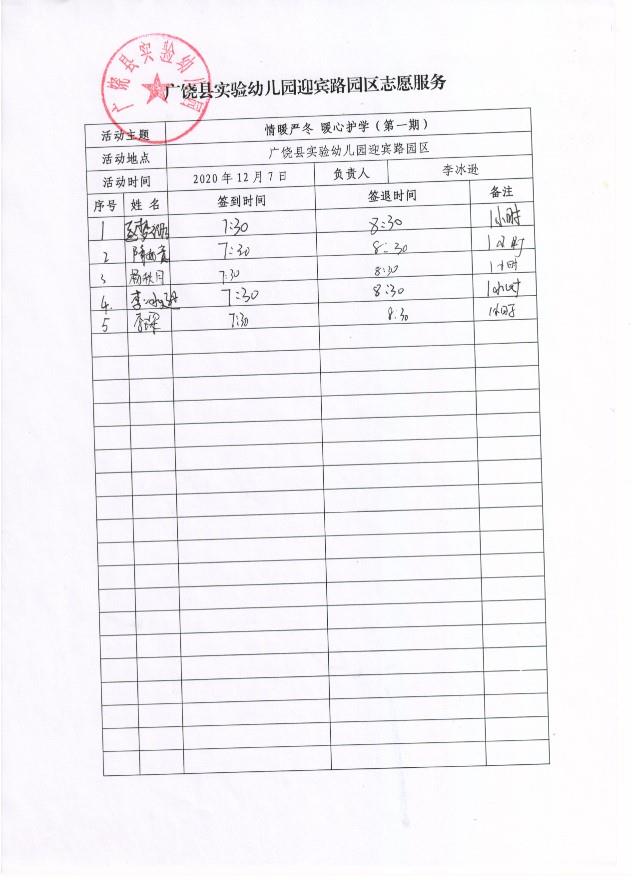 广饶县实验幼儿园
广饶县实验幼儿园迎宾路园区志愿服务
活动主题 情暖严冬 暖心护学(第一期)
活动地点 广饶县实验幼儿园迎宾路园区
活动时间 2020年12月7日 负责人 李冰逊
序号 姓名 签到时间 签退时间 备注
1 7:30 8:30 1小时
2 7:30 8:30 1小时
3 7:30 8:30 1小时
4. 李冰逊 7:30 8:30 1小时
5 李 7:30 8:30 1小时